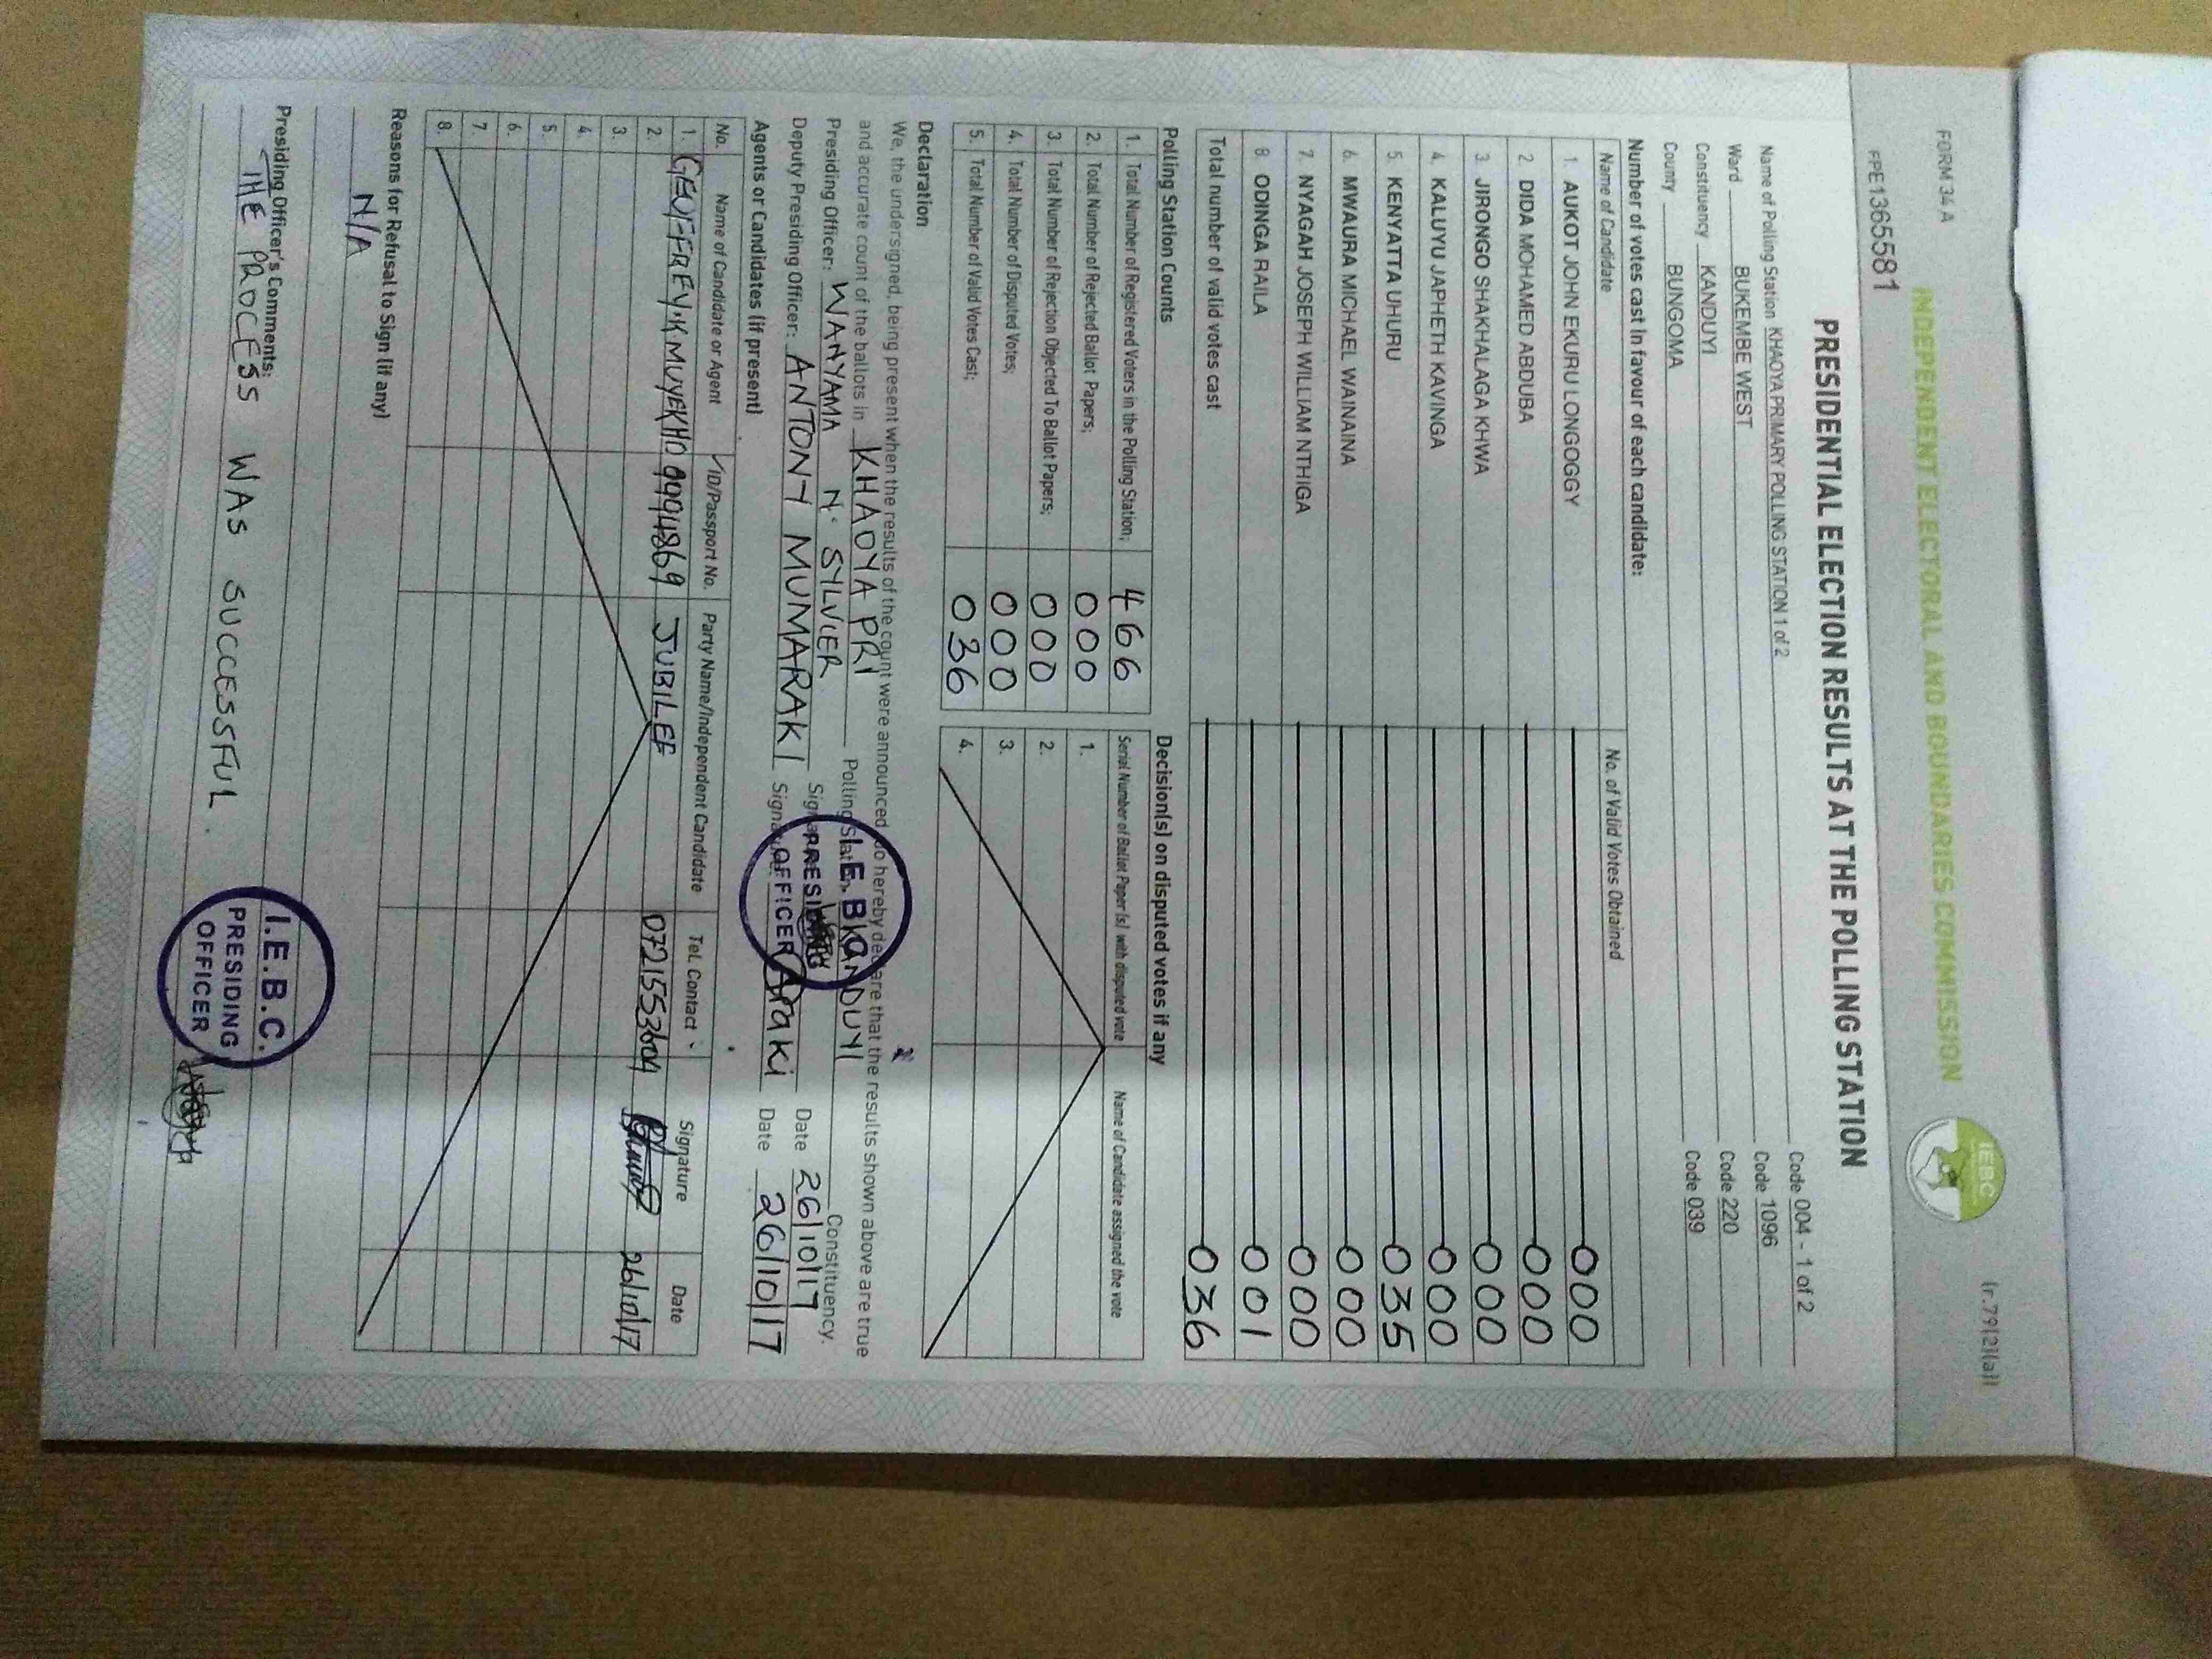 FORM 34 A
(r.79(2)(a))
INDEPENDENT ELECTORAL AND BOUNDARIES COMMISSION
IEBC
PPE1365581
PRESIDENTIAL ELECTION RESULTS AT THE POLLING STATION
Name of Polling Station KHAOYA PRIMARY POLLING STATION 1 of 2 Code 004 - 1 of 2
Ward BUKEMBE WEST Code 1096
Constituency KANDUYI Code 220
County BUNGOMA Code 039
Number of votes cast in favour of each candidate:
Name of Candidate No. of Valid Votes Obtained
1. AUKOT JOHN EKURU LONGOGGY 000
2 DIDA MOHAMED ABDUBA 000
3 JIRONGO SHAKHALAGA KHWA 000
4. KALUYU JAPHETH KAVINGA 000
5. KENYATTA UHURU 035
6. MWAURA MICHAEL WAINAINA 000
7. NYAGAH JOSEPH WILLIAM NTHIGA 000
8 ODINGA RAILA 001
Total number of valid votes cast 036
Polling Station Counts
1. Total Number of Registered Voters in the Polling Station; 466
2. Total Number of Rejected Ballot Papers; 000
3. Total Number of Rejection Objected To Ballot Papers; 000
4. Total Number of Disputed Votes; 000
5. Total Number of Valid Votes Cast; 036
Decision(s) on disputed votes if any
Serial Number of Ballot Paper (s) with disputed vote Name of Candidate assigned the vote
1.
2.
3.
4.
Declaration
We, the undersigned, being present when the results of the count were announced do hereby declare that the results shown above are true
and accurate count of the ballots in KHAOYA PRI Polling Station, KANDUYI Constituency.
Presiding Officer: WANYAMA N. SYLVIER Signature Date 26/10/17
Deputy Presiding Officer: ANTONY MUMARAKI Signature Date 26/10/17
I.E.B.C.
PRESIDING
OFFICER
Agents or Candidates (if present)
No. Name of Candidate or Agent ID/Passport No. Party Name/Independent Candidate Tel. Contact Signature Date
1. GEOFFREY.K MUYEKHO 9994869 JUBILEE 0721553604 26/10/17
2.
3.
4.
5
6.
7.
8.
Reasons for Refusal to Sign (if any)
N/A
Presiding Officer's Comments:
THE PROCESS WAS SUCCESSFUL.
I.E.B.C.
PRESIDING
OFFICER